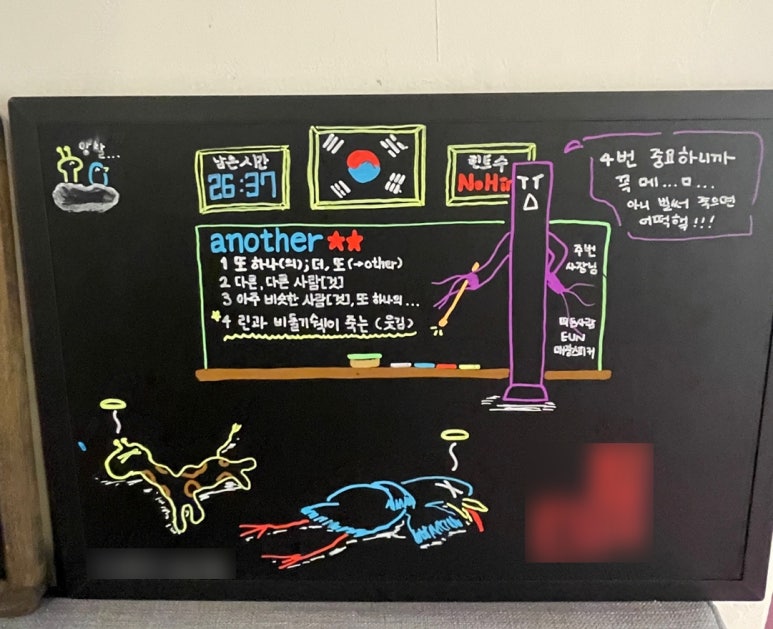 앙 찰...
남은 시간
26:37
힌트수
No Hin
TT
4번 중요하니까
꼭 메...ㅁ...
아니 벌써 죽으면
어떡해!!!
another
1 또 하나(의); 더, 또(→other)
2 다른, 다른 사람[것]
3 아주 비슷한 사람[것], 또 하나의...
4 린과 비둘기쉑이 죽는 (웃김)
주번
사장님
떠든사람
EUN